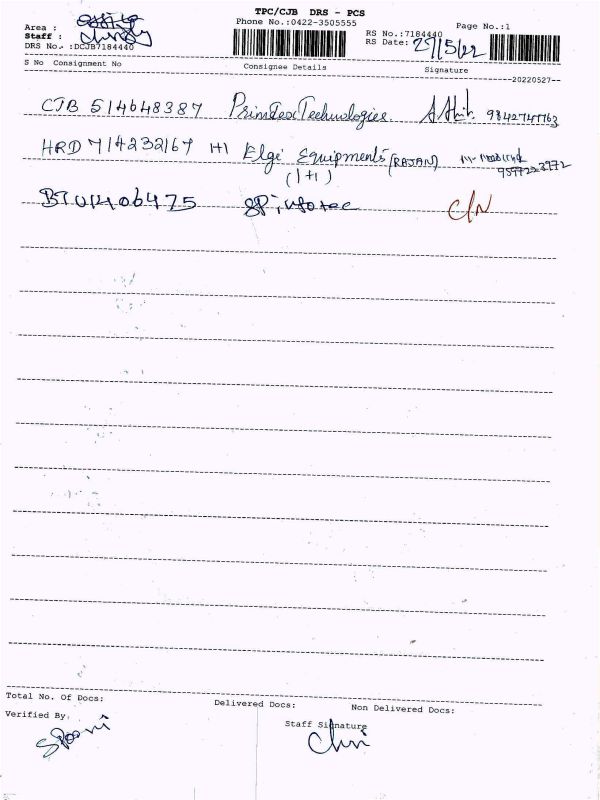 TPC/CJB DRS - PCS
Area : Phone No.:0422-3505555 Page No.:1
Staff : RS No.:7184440
DRS No. :DCJB7184440 RS Date: 27/5/22
S No Consignment No Consignee Details Signature
--20220527--
CJB 514648387 Primtex Technologies 9842747763
HRD 714232167 1+1 Elgi Equipments (RAJAN)
(1+1)
SP infotec C/N
Total No. Of Docs: Delivered Docs: Non Delivered Docs:
Verified By, Staff Signature